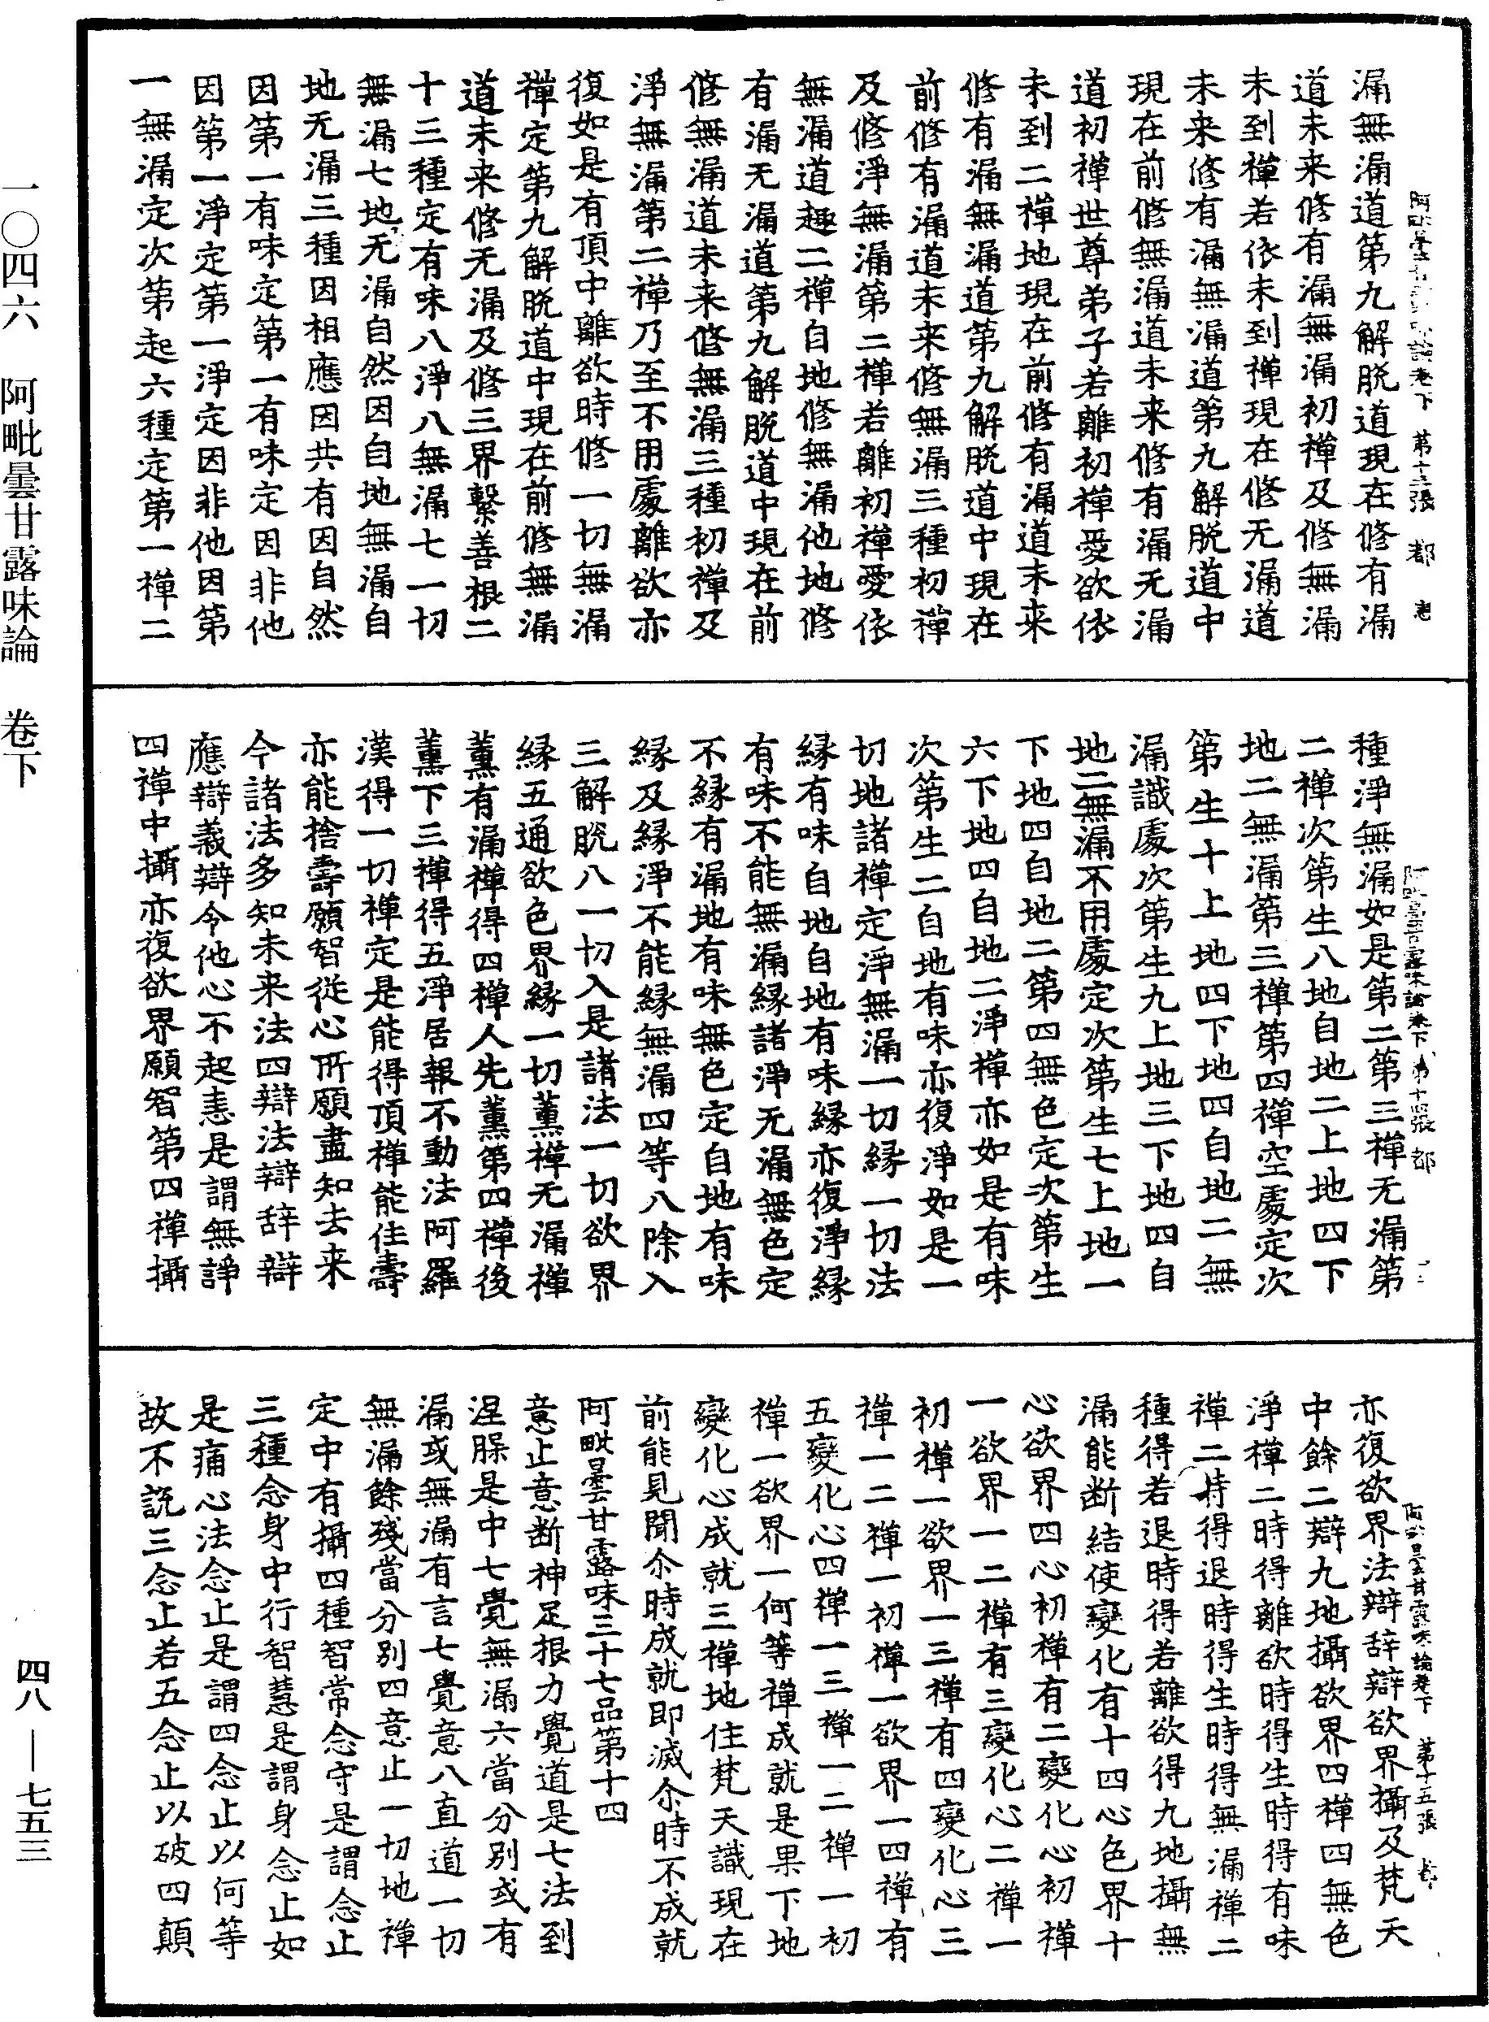 漏無漏道第九解脫道現在修有漏
道未来修有漏無漏初禪及修無漏
未到禪若依未到禪現在修无漏道
未来修有漏無漏道第九解脫道中
現在前修無漏道未来修有漏无漏
道初禪世尊弟子若離初禪愛欲依
未到二禪地現在前修有漏道未来
修有漏無漏道第九解脫道中現在
前修有漏道未来修無漏三種初禪
及修淨無漏第二禪若離初禪愛依
無漏道趣二禪自地修無漏他地修
有漏无漏道第九解脫道中現在前
修無漏道未来修無漏三種初禪及
淨無漏第二禪乃至不用處離欲亦
復如是有頂中離欲時修一切無漏
禪定第九解脫道中現在前修無漏
道未来修无漏及修三界繫善根二
十三種定有味八淨八無漏七一切
無漏七地无漏自然因自地無漏自
地无漏三種因相應因共有因自然
因第一有味定第一有味定因非他
因第一淨定第一淨定因非他因第
一無漏定次第起六種定第一禪二
種淨無漏如是第二第三禪无漏第
二禪次第生八地自地二上地四下
地二無漏第三禪第四禪空處定次
第生十上地四下地四自地二無
漏識處次第生九上地三下地四自
地二無漏不用處定次第生七上地一
下地四自地二第四無色定次第生
六下地四自地二淨禪亦如是有味
次第生二自地有味亦復淨如是一
切地諸禪定淨無漏一切緣一切法
緣有味自地自地有味緣亦復淨緣
有味不能無漏緣諸淨无漏無色定
不緣有漏地有味無色定自地有味
緣及緣淨不能緣無漏四等八除入
三解脫八一切入是諸法一切欲界
緣五通欲色界緣一切薰禪无漏禪
薰有漏禪得四禪人先薰第四禪後
薰下三禪得五淨居報不動法阿羅
漢得一切禪定是能得頂禪能住壽
亦能捨壽願智從心所願盡知去来
今諸法多知未来法四辯法辯辞辯
應辯義辯令他心不起恚是謂無諍
四禪中攝亦復欲界願智第四禪攝
亦復欲界法辯辞辯欲界攝及梵天
中餘二辯九地攝欲界四禪四無色
淨禪二時得離欲時得生時得有味
禪二時得退時得生時得無漏禪二
種得若退時得若離欲得九地攝無
漏能断結使變化有十四心色界十
心欲界四心初禪有二變化心初禪
一欲界一二禪有三變化心二禪一
初禪一欲界一三禪有四變化心三
禪一二禪一初禪一欲界一四禪有
五變化心四禪一三禪一二禪一初
禪一欲界一何等禪成就是果下地
變化心成就三禪地住梵天識現在
前能見聞尒時成就即滅尒時不成就
阿毗曇甘露味三十七品第十四
意止意断神足根力覺道是七法到
涅槃是中七覺無漏六當分別或有
漏或無漏有言七覺意八直道一切
無漏餘殘當分別四意止一切地禪
定中有攝四種智常念守是謂念止
三種念身中行智慧是謂身念止如
是痛心法念止是謂四念止以何等
故不說三念止若五念止以破四顛
一〇四六　阿毗曇甘露味論　卷下
四八—七五三